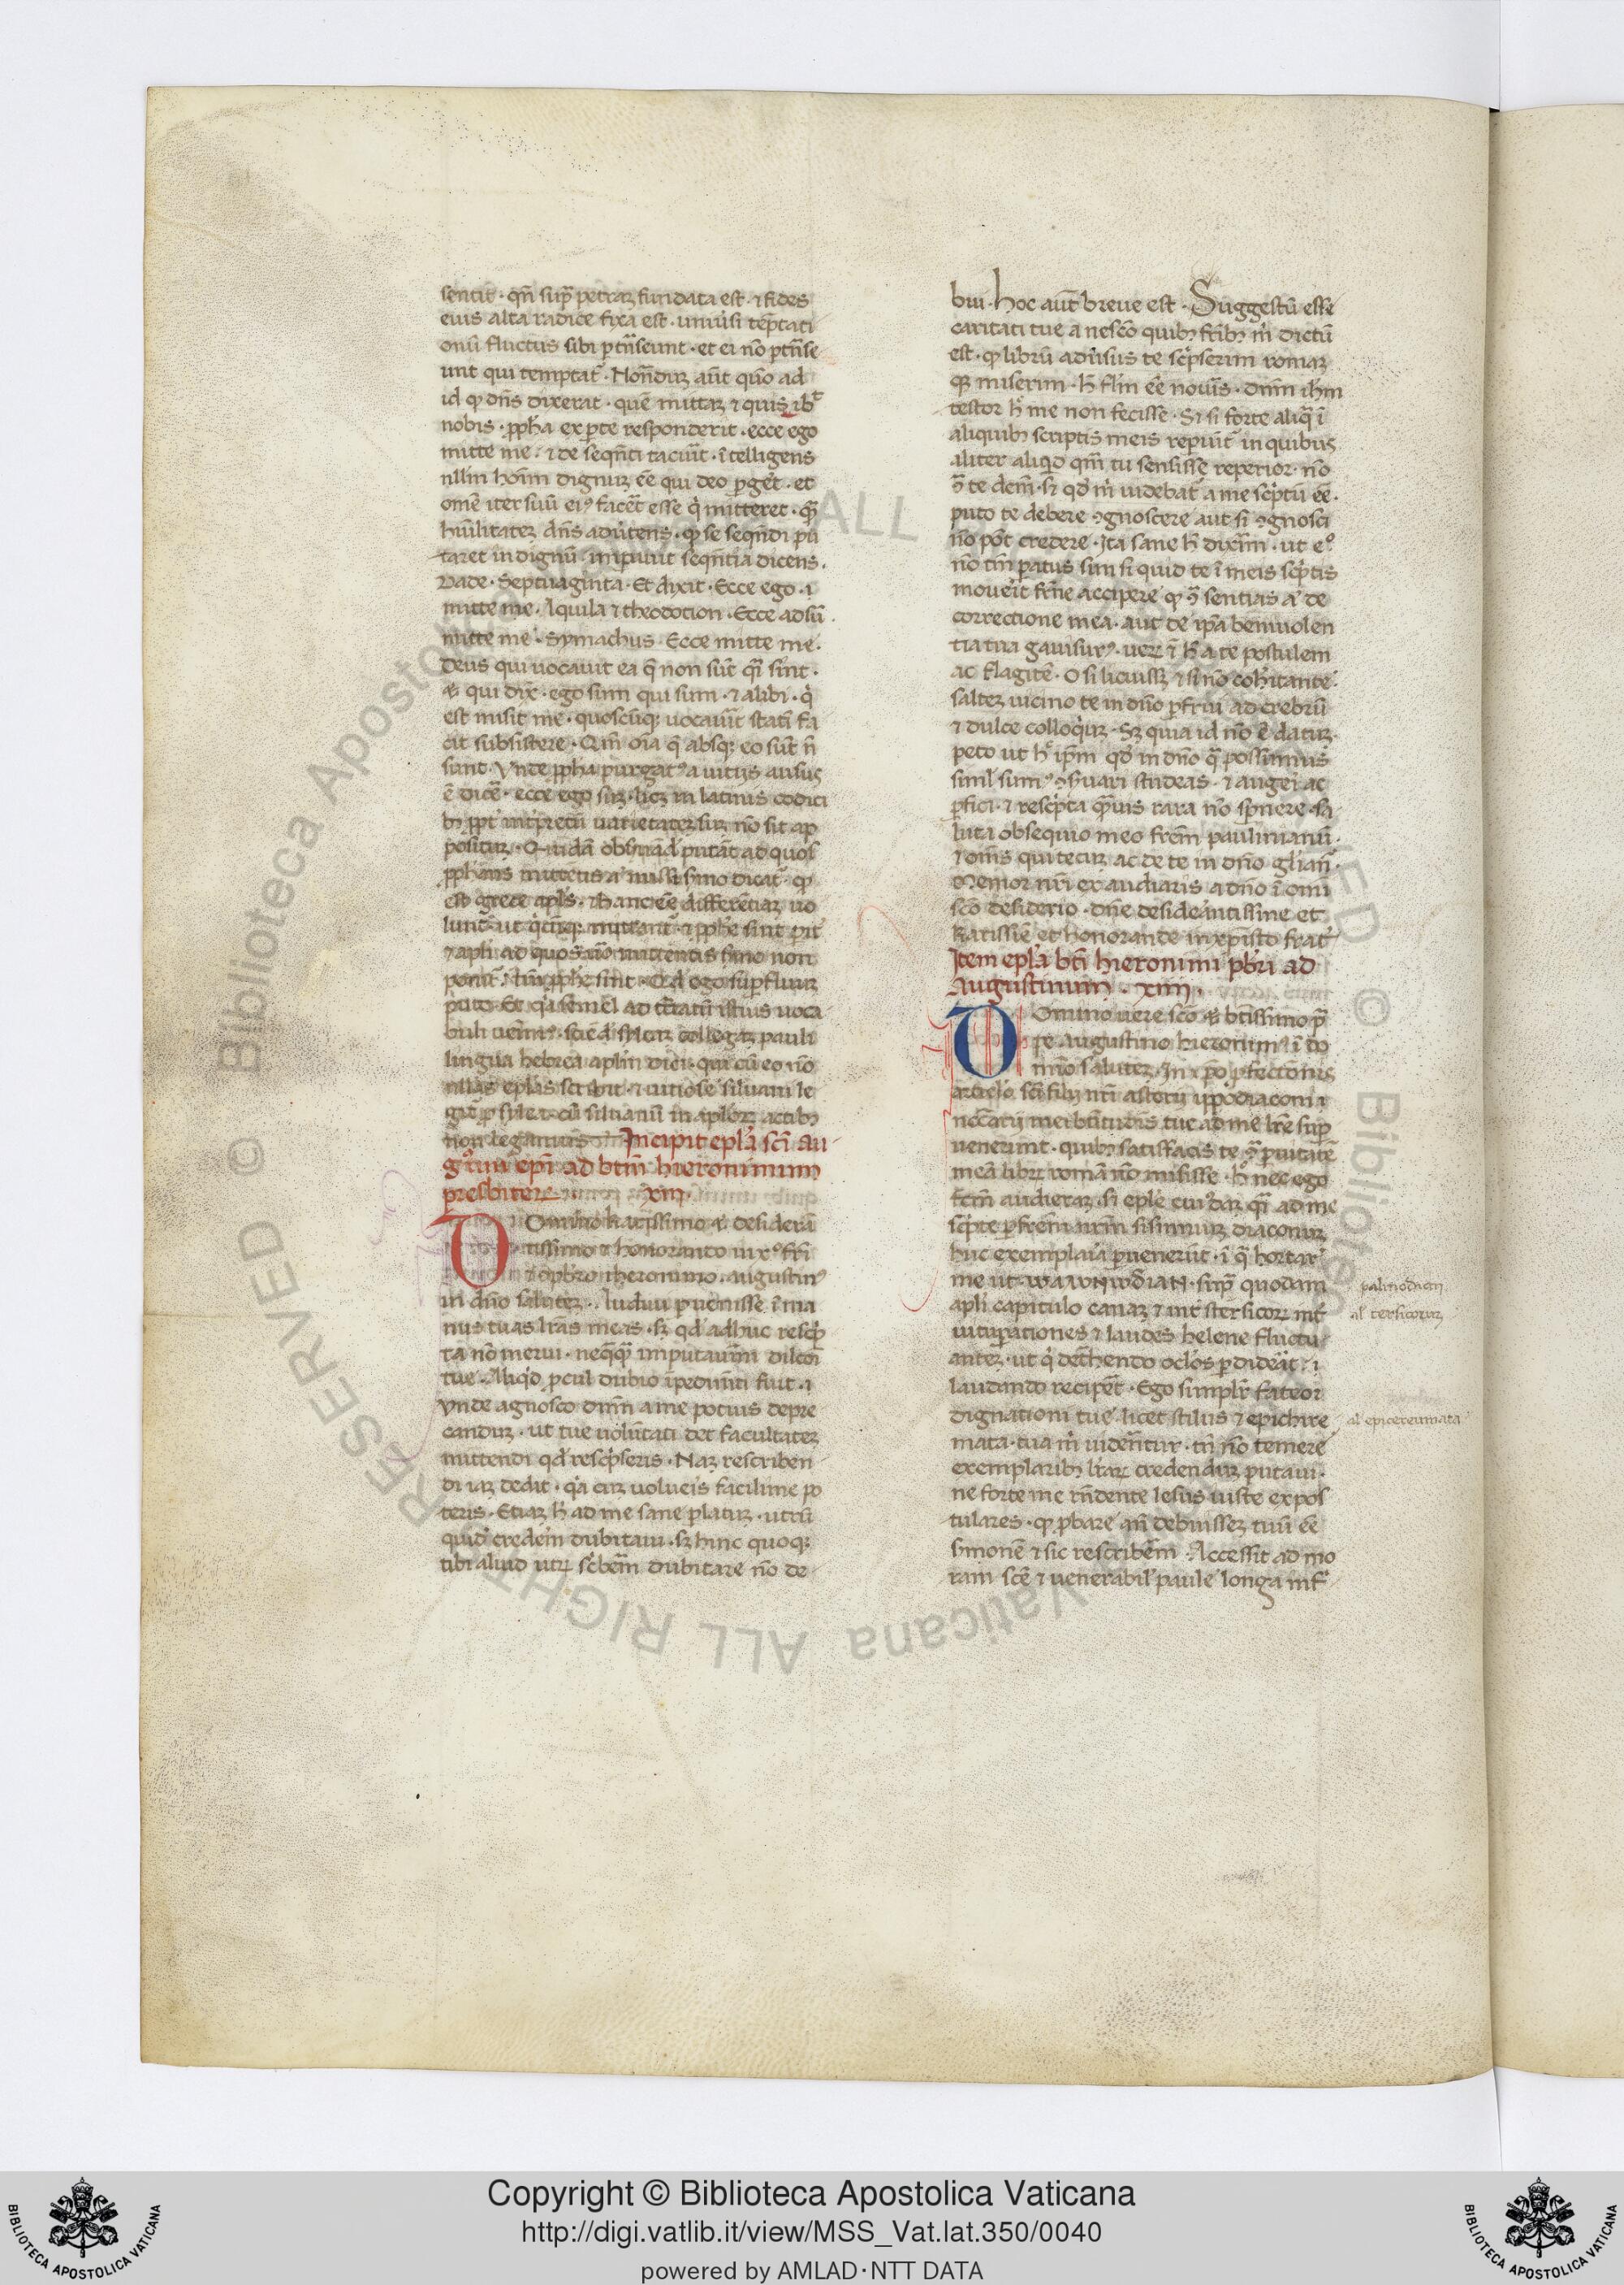 sentit · qm̄ sup̄ petraꝫ fundata est · ⁊ fides
eius alta radice fixa est · uniūsi tēptati
onū fluctus sibi p̄tn̄seunt · et ei nō ptn̄se
unt qui temptat᷑ · Nondūꝫ aūt quō ad
id qd̕ dn̄s dixerat · quē mittaꝫ ⁊ quis ibit
nobis · pp̄ha ex pte responderit · ecce ego
mitte me · ⁊ de seqn̄ti tacuit · ītelligens
nllm̄ hoīm dignuꝫ eē qui deo pget · et
omē iter suū eiꝰ facet̄ esse q̕ mitteret · quā
hūilitateꝫ dn̄s adūtens · qd̕ se seqn̄di pu
taret indignū · imputit seqn̄tia dicens ·
Vade · Septuaginta · Et dixit · Ecce ego · ⁊
mitte me · Aquila ⁊ theodotion · Ecce adsū ·
mitte me · Symachus · Ecce mitte me ·
Deus qui uocauit ea q̄ non sūt qn̄i sint ·
⁊ qui dix̄ · ego sum qui sum · ⁊ alibi · q̕
est misit me · quoscūqꝫ uocauīt statī fa
cit subsistere · Qm̄ oīa q̄ absqꝫ eo sūt n̄
sunt · Vnde pp̄ha purgatꝰ a uitijs ausus
ē dicē · ecce ego suꝫ · licꝫ in latinis codici
bꝫ ppt̄ intp̄retū uarietateꝫ suꝫ nō sit ap
positūꝫ · Quidā obseruād̄ putāt ad quos
pp̄hetis mittentis ⁊ missi hīno dicat᷑ · qd̕
est grece apl̄s · ⁊ hanc eē differētiaꝫ uo
lunt᷑ · ut q̕cūqꝫ mittant᷑ ⁊ pp̄he sint pit᷑
⁊ apl̄i ad quos uō mittentis hīno non
ponit᷑ · tm̄ pp̄he sint · Qd̕ ego supfluuꝫ
puto · Et q̕a semel ad tc̄tatū istius uoca
buli uenimꝰ · sciēd̄ silam collegaꝫ pauli
lingua hebrea aplm̄ dici · qui cū eo nō
nllas epl̄as scribit · ⁊ uitiose siluani le
git᷑ p syla · cū siluanū in aplōꝝ actibꝫ
non legamus · Incipit epl̄a sc̄i au
gꝰtini epī ad btm̄ hieronimum
presbiteꝝ · xiij
Domino karissimo ⁊ desiderā
tissimo ⁊ honorando in xꝰ fr̄i
⁊ opbr̄o iheronimo · augustinꝰ
in dn̄o saluteꝫ · Audiui puenisse ī ma
nus tuas lr̄as meas · sꝫ qd̕ adhuc resc̕p
ta nō merui · neq̄qꝫ imputauim̄ dilcōi
tue · Aliq̕d pcul dubio īpedimti fuit · ⁊
Vnde agnosco dnm̄ a me potius depre
canduꝫ · ut tue uolūtati det facultateꝫ
mittendi qd̕ resc̕pseris · Naꝫ rescriben
di iaꝫ dedit · q̕a cuꝫ uolueis facilime po
teris · Etiaꝫ h̕ ad me sane platuꝫ · utrū
quid̄ credem̄ dubitaui · sꝫ hinc quoqꝫ
tibi aliud utꝝ sc̕bem̄ dubitare nō de
bui · hoc aūt breue est · Suggestū esse
caritati tue a nesc̕o quibꝫ fr̄ibꝫ m̕ dictū
est · qd̕ librū adūsus te sc̕pserim romaꝫ
qꝫ miserim · h̕ flm̄ eē nouīs · dnm̄ ihm̄
testor h̕ me non fecisse · Si si forte aliq̄ ī
aliquibꝫ scriptis meis repiūt᷑ in quibus
aliter aliq̕d qm̄ tu sensisse reperior · nō
ↄ̄ te dem̄ · si qd̕ m̕ uidebat᷑ a me sc̕ptū eē ·
puto te debere ↄgnoscere aut si ↄgnosci
nō pōt credere · Ita sane h̕ dixīm · ut eᵒ
nō tm̄ patus sim si quid te ī meis sc̕ptis
moueīt fr̄ne accipere qd̕ ↄ̄ sentias aʼ de
correctione mea · aut de ip̄a beniuolen
tia tua gauisurꝰ · ueꝝ ⁊ h̕ a te postulem
ac flagitē · O si licuissꝫ ⁊ si nō cohitante᷑
salteꝫ uicino te in dn̄o pfrui ad crebrū
⁊ dulce colloquiꝫ · Sꝫ quia id nō ē datuꝫ ·
peto ut h̕ ip̄m qd̕ in dn̄o q̄ possimus
simĺ simꝰ ↄseruari studeas · ⁊ augeri ac
pfici · ⁊ resc̕pta quāuis rara nō spnere · sa
luta obsequio meo fr̄em paulinianū ·
⁊ omīs qui tecuꝫ ac de te in dn̄o gl̄iant᷑ ·
Memor nr̄i exaudiaris a dn̄o ī omī
sc̄o desiderio · dn̄e desideantissime et
karissie et honorande in xp̄isto frat᷑
Item epl̄a bt̄i hieronimi pbr̄i ad
Augustinum · xiiij ·
Domino uere sc̄o ⁊ btīssimo pa
pe augustino hieronimꝰ ī do
mīo saluteꝫ · In xp̄o pfectionis
articlo sc̄i filij nr̄i asterij ypodiaconi ⁊
necārij mei btītudīs tue ad me lr̄e sup
uenerunt · quibꝫ satisfacis te ↄ̄ puitatē
meā libꝝ romā nō misisse · h̕ nec ego
fcm̄ audieraꝫ · si eple cuidaꝫ q̄ ad me
sc̕pte p frēm nrm̄ sisinnuꝫ diaconuꝫ
huc exemplaīa puenerūt · ī q̄ hortarꝰ
me ut · ΠΑΛΙΝΩΔΙΑΝ · sup̄ quodam
apl̄i capitulo canaꝫ ⁊ imit᷑ stersicoꝝ int̕
uitupationes ⁊ laudes helene fluctu
anteꝫ · ut q̕ det̄hendo oclos pdideāt · ⁊
laudando recipet̄ · Ego simplr̄ fateor
dignationi tue licet stilus ⁊ epichire
mata · tua m̕ uiderentur · tn̄ nō temere
exemplaribꝫ lr̄aꝝ credenduꝫ putaui ·
ne forte me rn̄dente lesus iuste expos
tulares · qd̕ pbare an̄ debuisseꝫ tuū eē
hmonē ⁊ sic rescribem̄ · Accessit ad mo
ram sc̄e ⁊ uenerabiĺ paule longa inf᷑
palinodiam
al̕ tersicoruꝫ
al̕ epicereumata
Copyright © Biblioteca Apostolica Vaticana
http://digi.vatlib.it/view/MSS_Vat.lat.350/0040
powered by AMLAD·NTT DATA
BIBLIOTECA APOSTOLICA VATICANA
BIBLIOTECA APOSTOLICA VATICANA